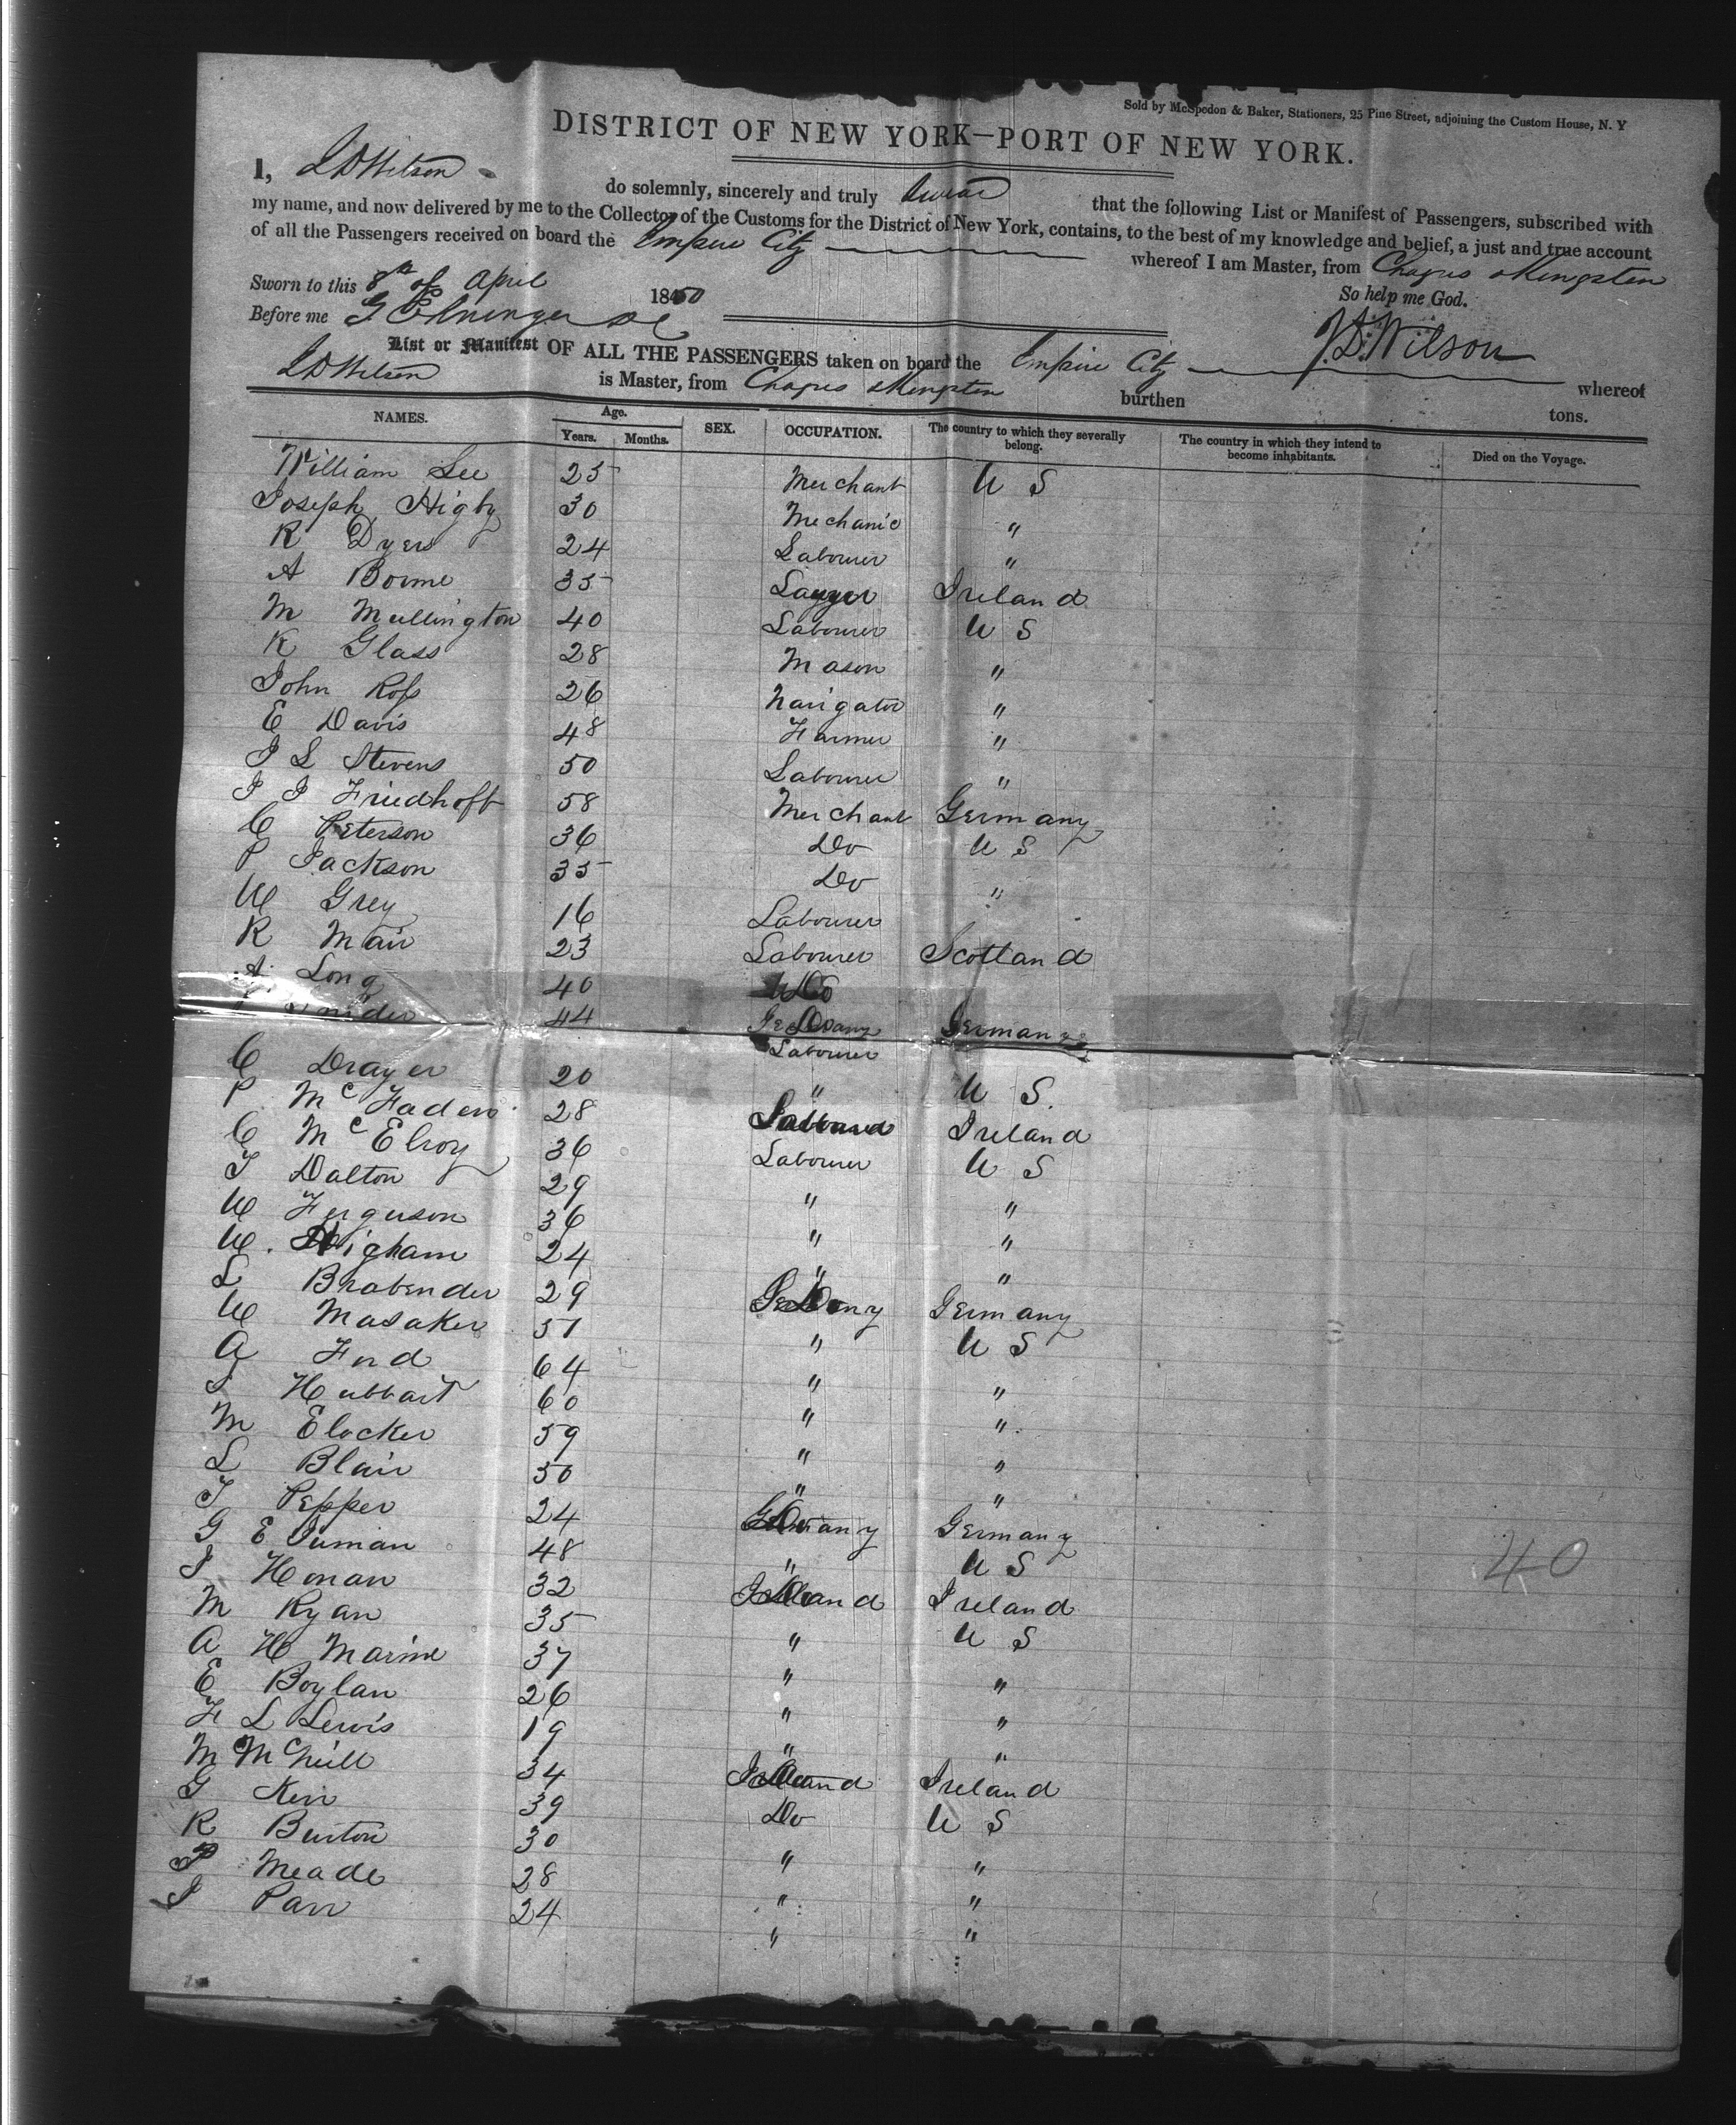 Sold by McSpedon & Baker, Stationers, 25 Pine Street, adjoining the Custom House, N. Y
DISTRICT OF NEW YORK—PORT OF NEW YORK.
I, J D Wilson do solemnly, sincerely and truly swear that the following List or Manifest of Passengers, subscribed with
my name, and now delivered by me to the Collector of the Customs for the District of New York, contains, to the best of my knowledge and belief, a just and true account
of all the Passengers received on board the Empire City whereof I am Master, from Chagres & Kingston
Sworn to this 8th of April 1850 So help me God.
Before me J.D. Wilson
List or Manifest OF ALL THE PASSENGERS taken on board the Empire City whereof
J D Wilson is Master, from Chagres & Kingston burthen tons.
NAMES. Age. Years. Months. SEX. OCCUPATION. The country to which they severally belong. The country in which they intend to become inhabitants. Died on the Voyage.
William Lee 25 Merchant U S
Joseph Higby 30 Mechanic "
R Dyer 24 Labourer "
A Bourne 35 Ireland
M Mullington 40 Labourer U S
R Glass 28 Mason "
John Ross 26 Navigator "
E Davis 48 Farmer "
J L Stevens 50 Labourer "
J J Friedhoft 58 Merchant Germany
C Peterson 36 Do U S
P Jackson 35 Do "
W Grey 16 Labourer
R Mair 23 Labourer Scotland
A Long 40 Do
44 Germany
Labourer
C Drayer 20 " U S.
P McFaden 28 Ireland
C McElroy 36 Labourer U S
J Dalton 29 " "
W Ferguson 36 " "
W. Higham 24 " "
L Brabender 29 Do Germany
W Masaker 51 " U S
A Ford 64 " "
S Hubbart 60 " "
M Elocker 59 " "
L Blair 50 " "
T Pepper 24 Do Germany
G E Puman 48 " U S
J Honan 32 Do Ireland
M Ryan 35 " U S
A H Marine 37 " "
E Boylan 26 " "
F L Lewis 19 " "
M McNeill 34 Do Ireland
G Kerr 39 Do U S
R Burton 30 " "
P Meade 28 " "
J Parr 24 " "
40